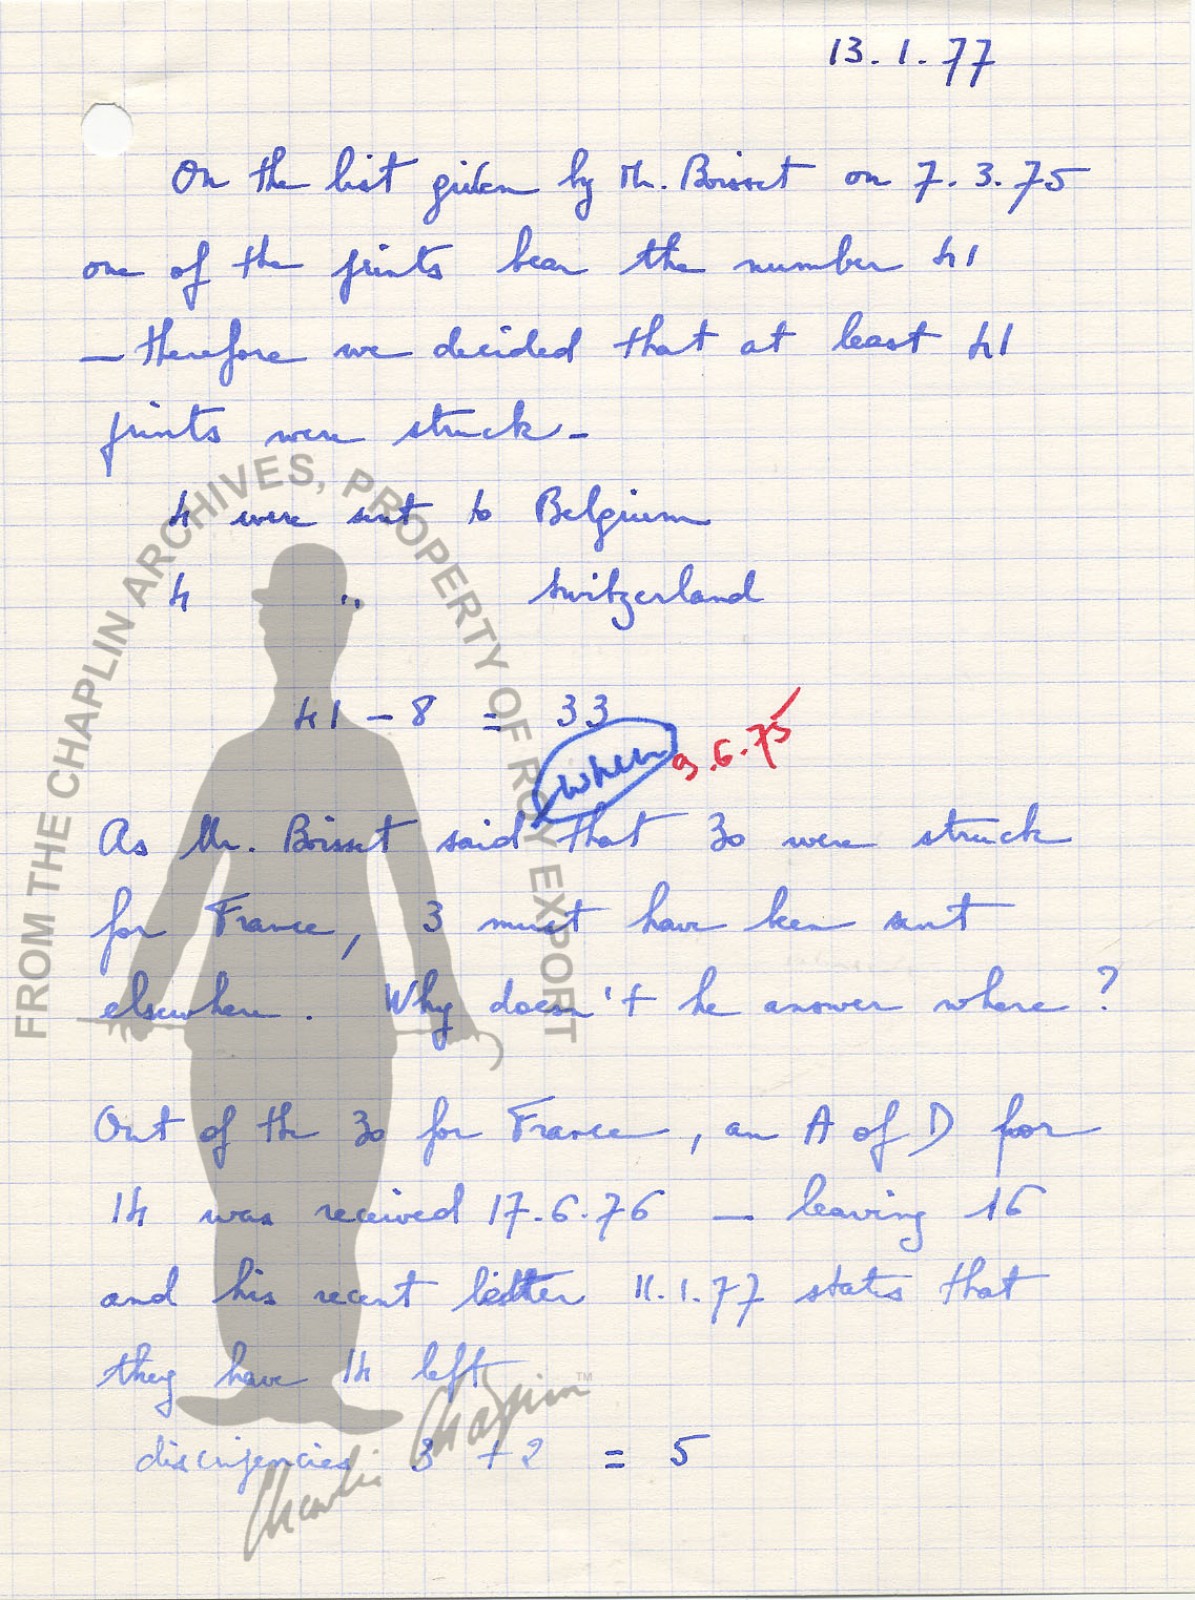 13.1.77
On the list given by Mr. Boisset on 7.3.75
one of the prints bear the number 41
– therefore we decided that at least 41
prints were struck –
4 were sent to Belgium
4 " Switzerland
41 – 8 = 33
when 9.6.75
As Mr. Boisset said that 30 were struck
for France, 3 must have been sent
elsewhere. Why doesn't he answer where?
Out of the 30 for France, an A of D for
14 was received 17.6.76 — leaving 16
and his recent letter 11.1.77 states that
they have 14 left
discrepencies 3 + 2 = 5
FROM THE CHAPLIN ARCHIVES, PROPERTY OF ROY EXPORT
Charlie Chaplin™